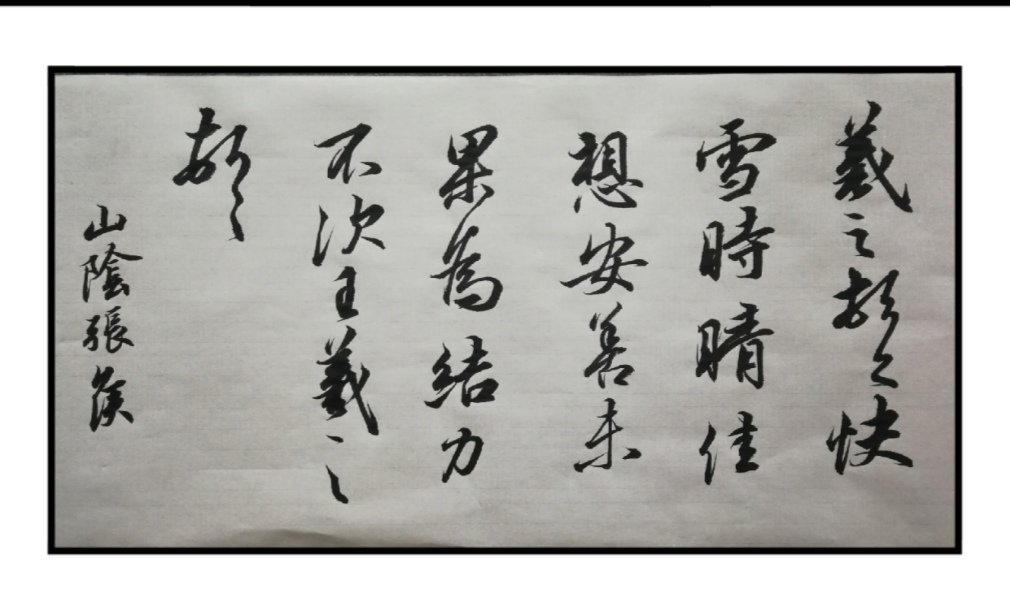 羲之頓首快
雪時晴佳
想安善未
果為結力
不次王羲之
頓首
山陰張侯